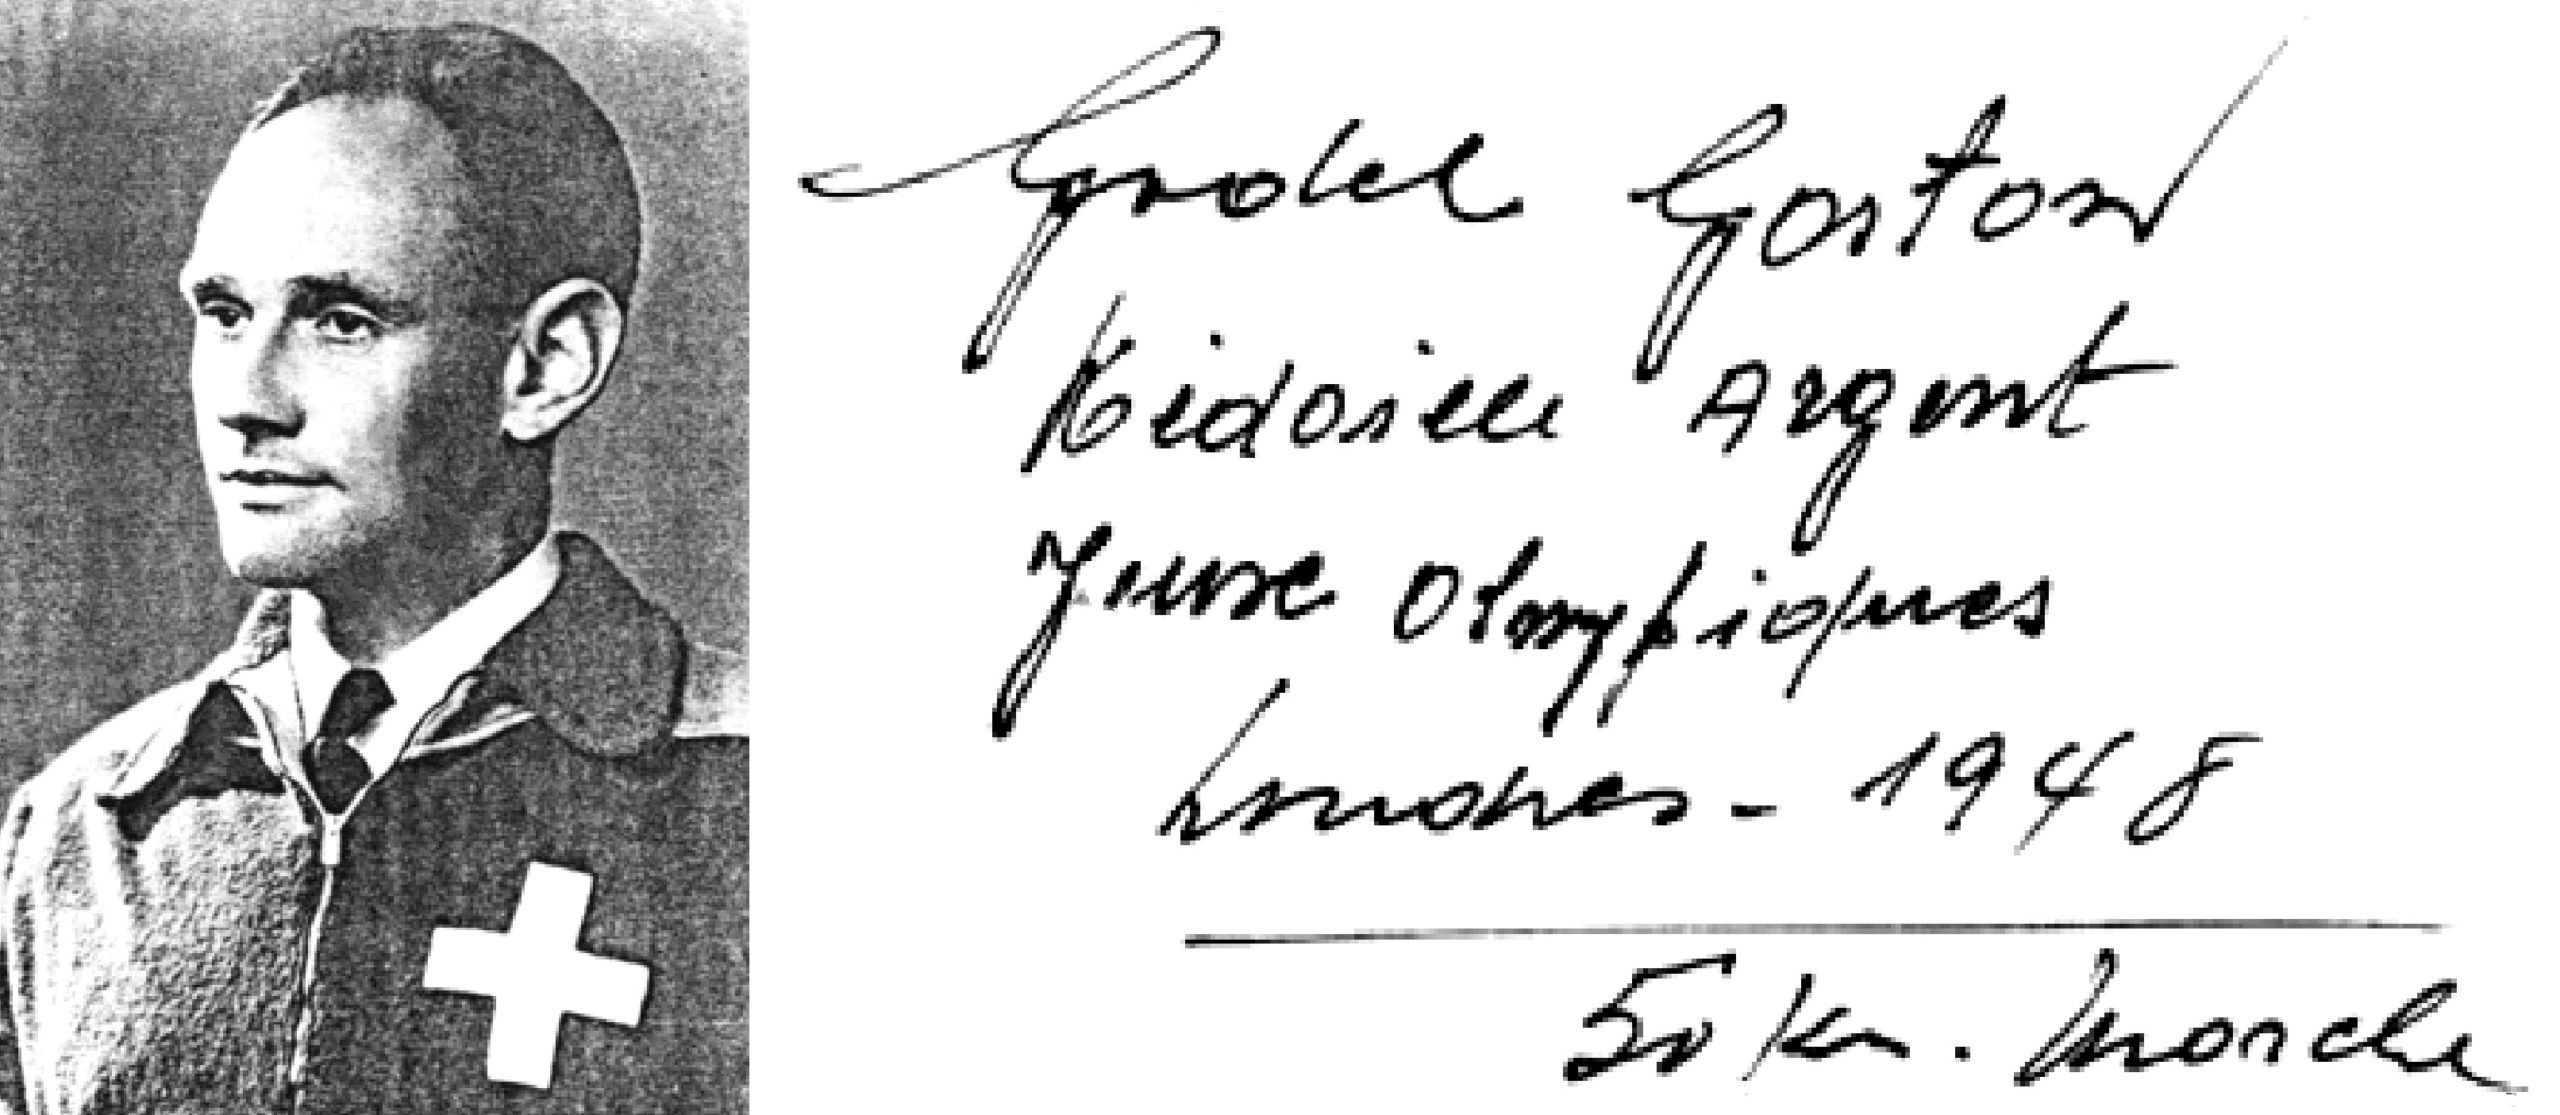 Godel Gaston
Médaille Argent
Jeux Olympiques
Londres - 1948
50 km. Marche